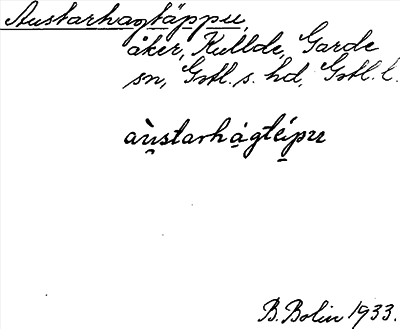 Austarhagtäppu,
åker, Kullde, Garde
sn, Gotl. s. hd, Gotl. l.
au̇starhagtäipu
B. Bolin 1933.